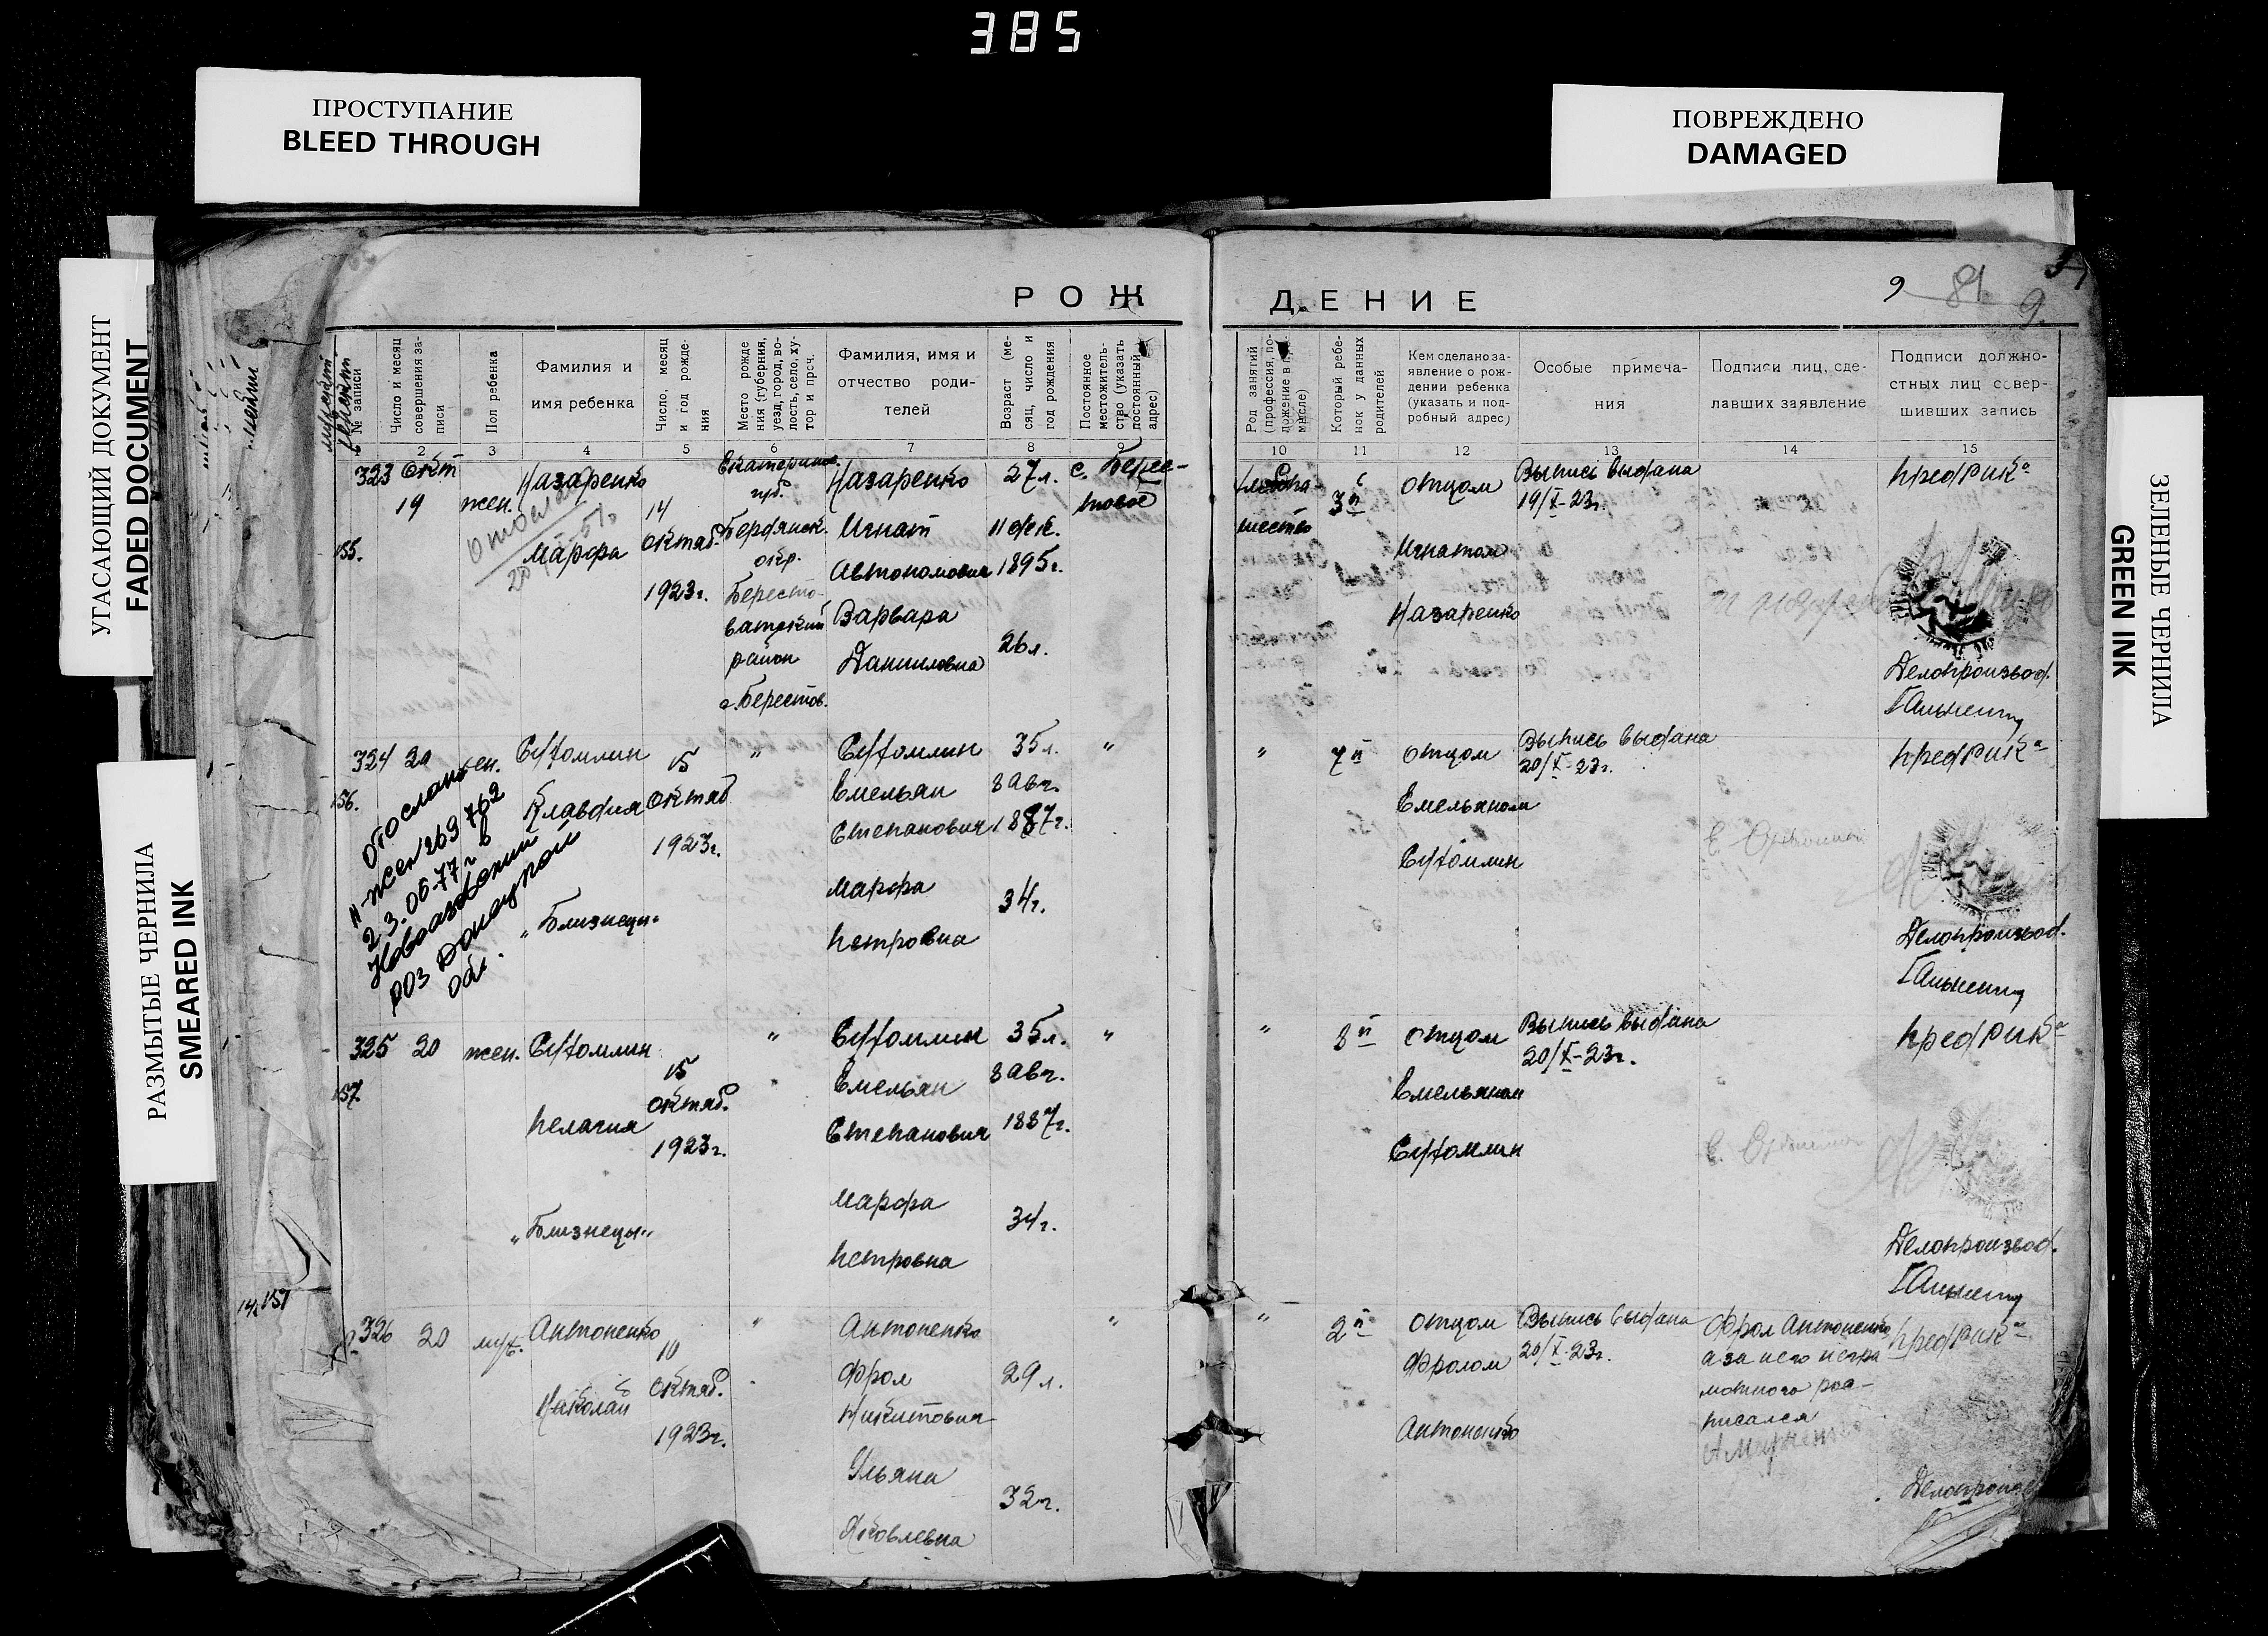 385
ПРОСТУПАНИЕ
BLEED THROUGH
ПОВРЕЖДЕНО
DAMAGED
УГАСАЮЩИЙ ДОКУМЕНТ
FADED DOCUMENT
РАЗМЫТЫЕ ЧЕРНИЛА
SMEARED INK
ЗЕЛЕНЫЕ ЧЕРНИЛА
GREEN INK
РОЖДЕНИЕ
9 81 9.
№ записи
Число и месяц совершения записи
Пол ребенка
Фамилия и
имя ребенка
Число, месяц
и год рожде-
ния
Место рожде
ния (губерния,
уезд, город, во-
лость, село, ху-
тор и проч.
Фамилия, имя и
отчество роди-
телей
Возраст (ме-
сяц, число и
год рождения
Постоянное
местожитель-
ство (указать
постоянный
адрес)
Род занятий
(профессия, по-
ложение в про-
мысле)
Который ребе-
нок у данных
родителей
Кем сделано за-
явление о рож-
дении ребенка
(указать и под-
робный адрес)
Особые примеча-
ния
Подписи лиц, сде-
лавших заявление
Подписи должно-
стных лиц совер-
шивших запись
2 3 4 5 6 7 8 9 10 11 12 13 14 15
323 окт
19
155.
жен.
Назаренко
Марфа
14
октяб.
1923г.
Екатеринос.
губ.
Бердянск.
окр.
Бересто-
ватский
район
с. Берестов.
Назаренко
Игнат
Автономович
Варвара
Данииловна
27л.
11 дек.
1895г.
26л.
с. Берес-
товое
3й
отцом
Игнатом
Назаренко
Выпись выдана
19/X-23г.
ПредРИКа
Делопроизвод.
324 20 жен.
156.
Сутомлин
Клавдия
„Близнецы"
15
октяб
1923г.
"
Сутомлин
Емельян
Степанович
Марфа
Петровна
35л.
8 авг.
1887г.
34г.
"
"
7й
отцом
Емельяном
Сутомлин
Выпись выдана
20/X-23г.
ПредРИКа
Делопроизвод.
отослано
н-жен 269762
23.06.77г в
Новоазовский
РОЗ Донецкой
обл.
325 20 жен.
157.
Сутомлин
Пелагия
„Близнецы"
15
октяб.
1923г.
"
Сутомлин
Емельян
Степанович
Марфа
Петровна
35л.
8 авг.
1887г.
34г.
"
"
8й
отцом
Емельяном
Сутомлин
Выпись выдана
20/X-23г.
ПредРИКа
Делопроизвод.
326 20 муж.
Антоненко
Николай
10
октяб.
1923г.
"
Антоненко
Фрол
Никитович
Ульяна
Яковлевна
29л.
32г.
"
"
2й
отцом
Фролом
Антоненко
Выпись выдана
20/X-23г.
Фрол Антоненко
а за него негра
мотного рас-
писался
ПредРИКа
Делопроизв